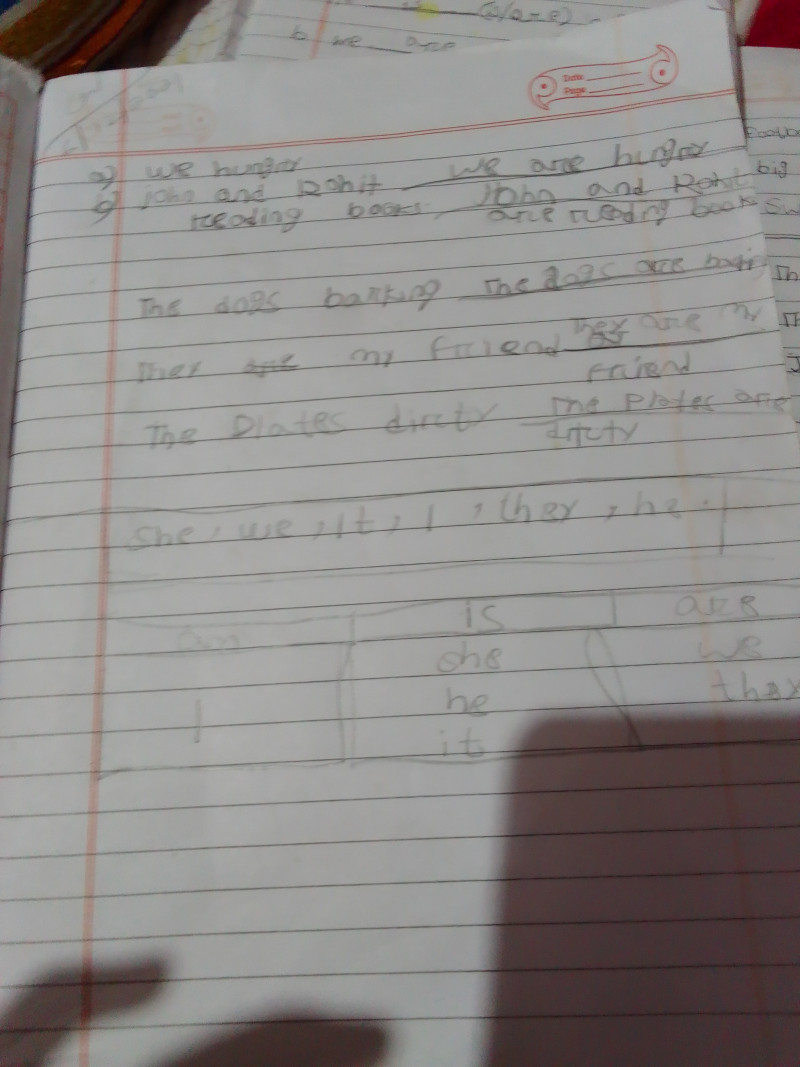 (is/are)
b we are
Date
Page
a) we hungry we are hungry
b) john and Rohit John and Rohit
reading books. are readng books
The dogs barking The dogs are
They are my friend They are my
friend
The Plates dirty The Plates are
dirty
she, we, it, I, they, he.
am is are
she we
I he they
it
big